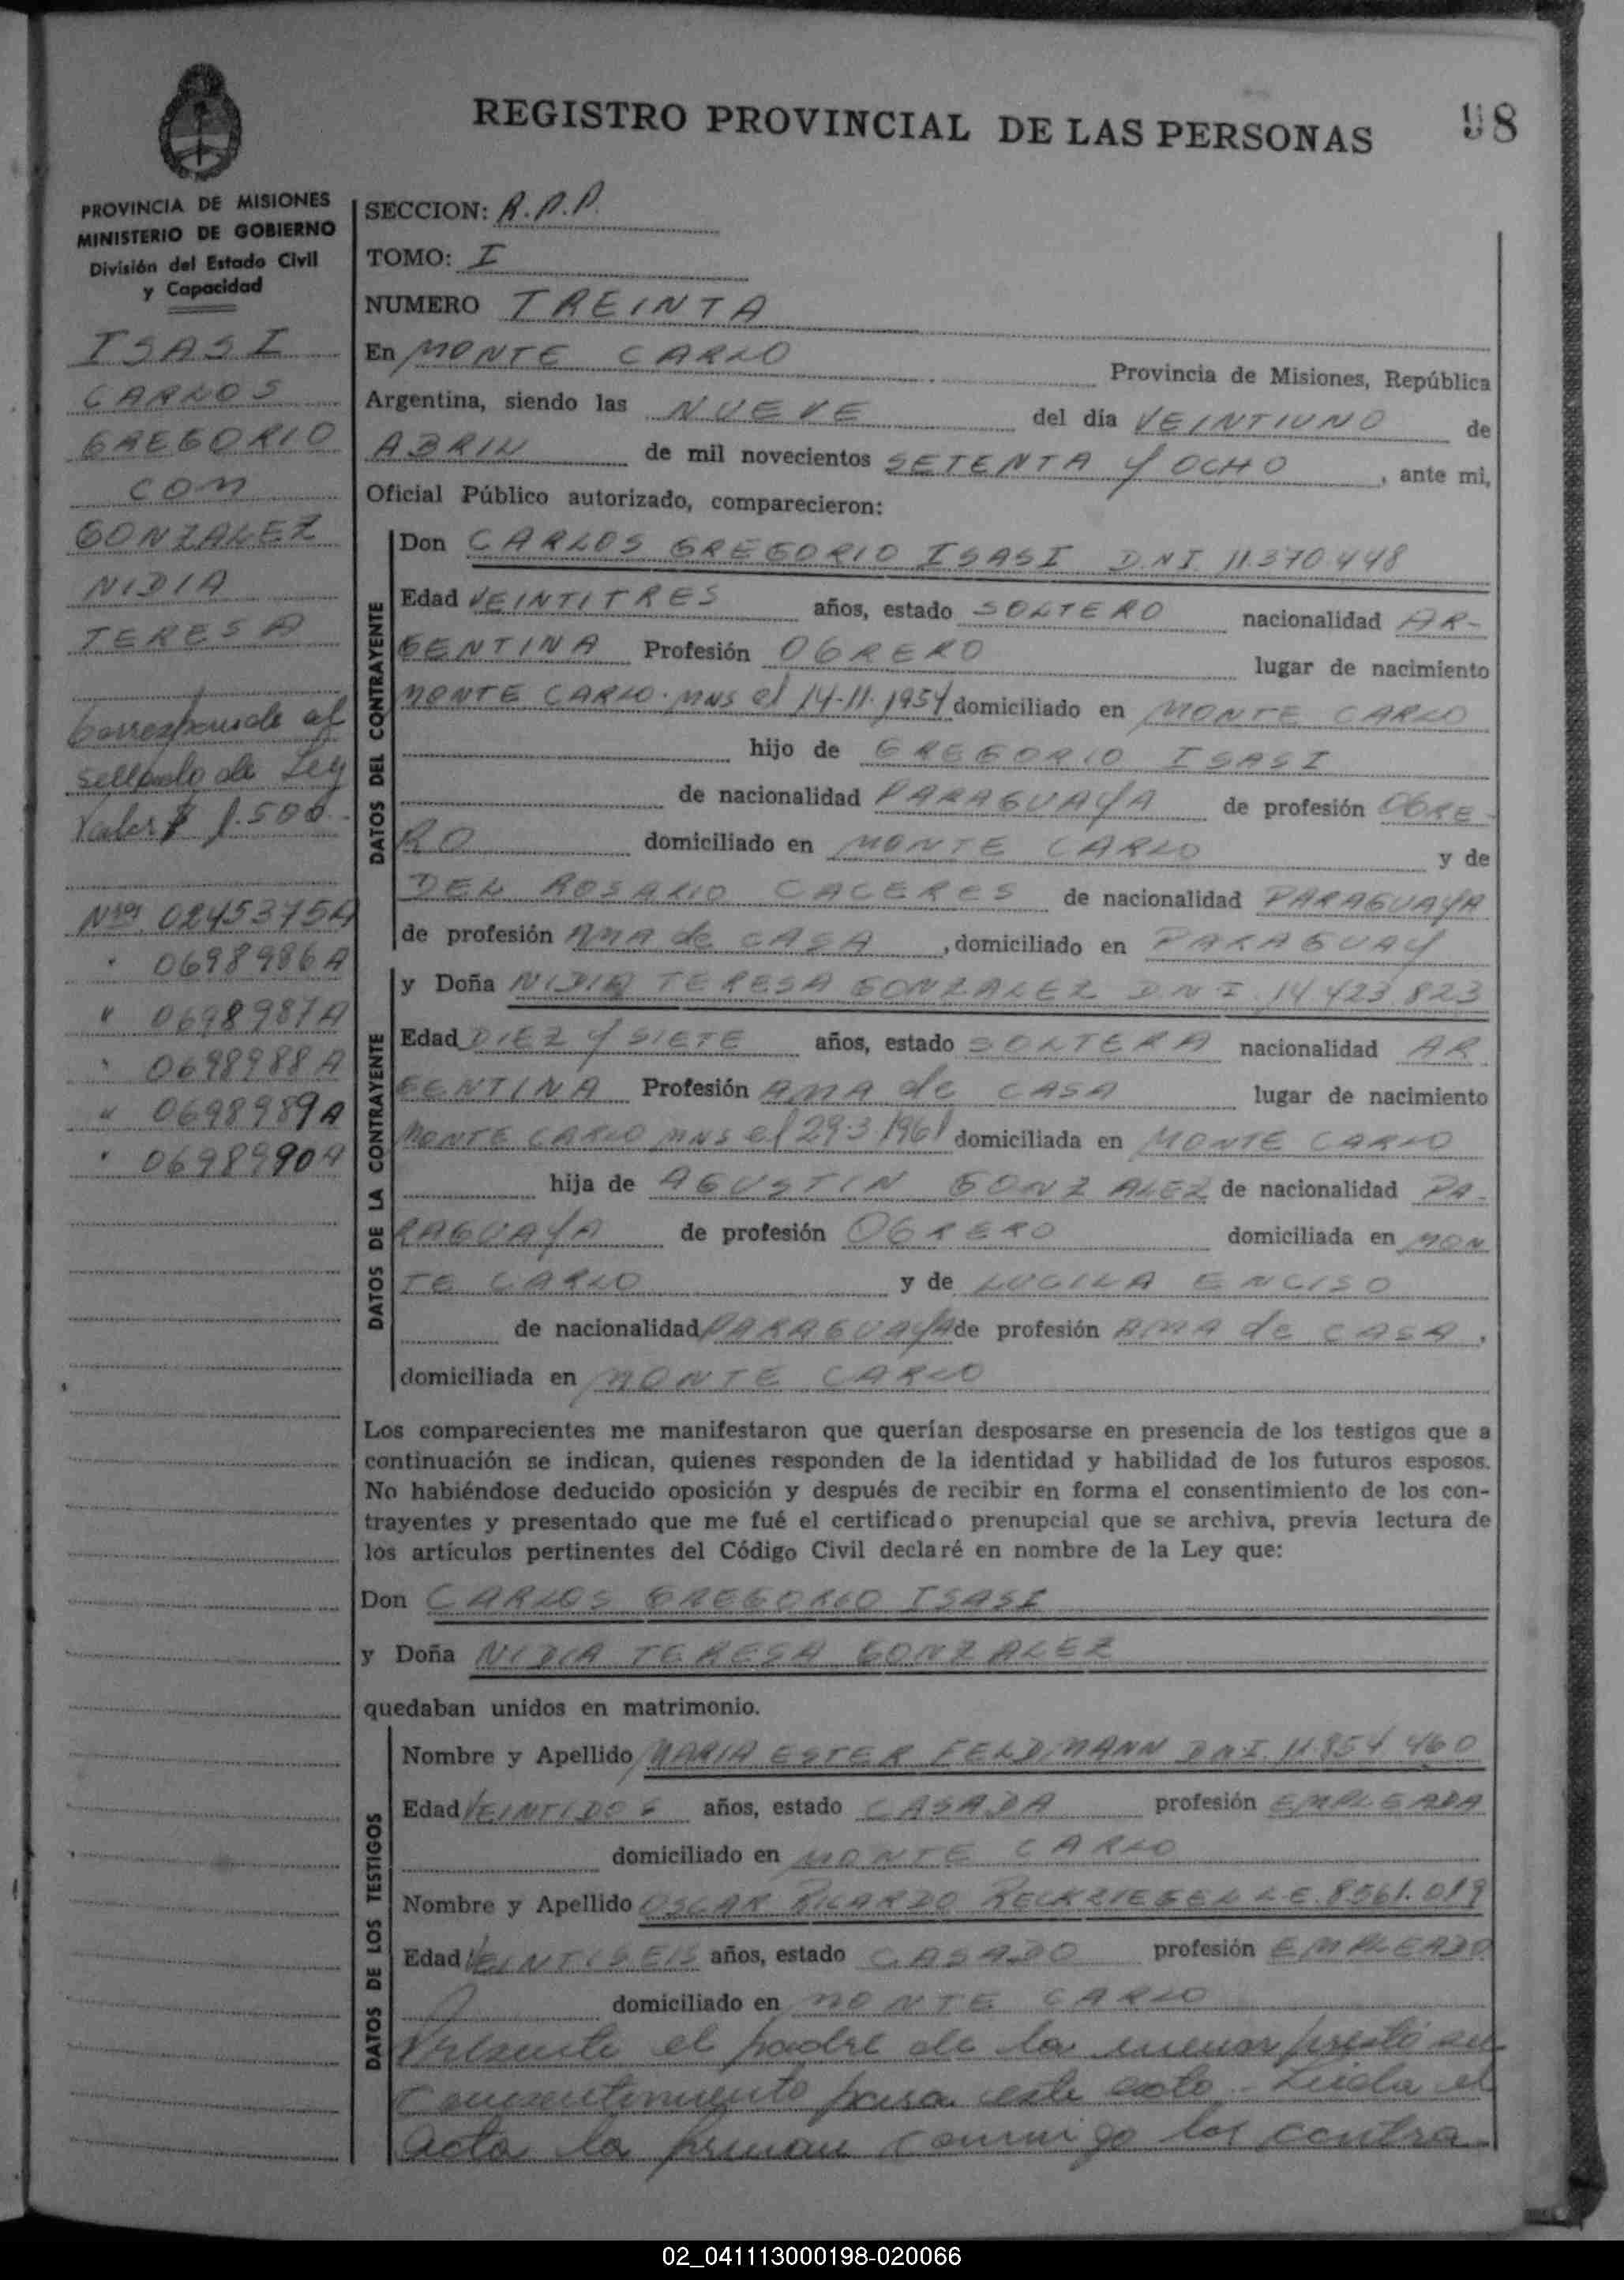 REGISTRO PROVINCIAL DE LAS PERSONAS
98
PROVINCIA DE MISIONES
MINISTERIO DE GOBIERNO
División del Estado Civil
y Capacidad
ISASI
CARLOS
GREGORIO
CON
GONZALEZ
NIDIA
TERESA
Corresponde al
sellado de Ley
Valor $ 1.500.-
Nros 0245375A
" 0698986A
" 0698987A
" 0698988A
" 0698989A
" 0698990A
SECCION: R.P.P.
TOMO: I
NUMERO TREINTA
En MONTE CARLO Provincia de Misiones, República
Argentina, siendo las NUEVE del día VEINTIUNO de
ABRIL de mil novecientos SETENTA Y OCHO, ante mi,
Oficial Público autorizado, comparecieron:
DATOS DEL CONTRAYENTE
Don CARLOS GREGORIO ISASI D.N.I. 11.370.448
Edad VEINTITRES años, estado SOLTERO nacionalidad AR-
GENTINA Profesión OBRERO lugar de nacimiento
MONTE CARLO. MNS el 14-11-1954 domiciliado en MONTE CARLO
hijo de GREGORIO ISASI
de nacionalidad PARAGUAYA de profesión OBRE-
RO domiciliado en MONTE CARLO y de
DEL ROSARIO CACERES de nacionalidad PARAGUAYA
de profesión AMA de CASA, domiciliado en PARAGUAY
DATOS DE LA CONTRAYENTE
y Doña NIDIA TERESA GONZALEZ D.N.I. 14.423.823
Edad DIEZ Y SIETE años, estado SOLTERA nacionalidad AR
GENTINA Profesión AMA de CASA lugar de nacimiento
MONTE CARLO MNS el 29-3-1961 domiciliada en MONTE CARLO
hija de AGUSTIN GONZALEZ de nacionalidad PA-
RAGUAYA de profesión OBRERO domiciliada en MON
TE CARLO y de LUCILA ENCISO
de nacionalidad PARAGUAYA de profesión AMA de CASA,
domiciliada en MONTE CARLO
Los comparecientes me manifestaron que querían desposarse en presencia de los testigos que a
continuación se indican, quienes responden de la identidad y habilidad de los futuros esposos.
No habiéndose deducido oposición y después de recibir en forma el consentimiento de los con-
trayentes y presentado que me fué el certificado prenupcial que se archiva, previa lectura de
los artículos pertinentes del Código Civil declaré en nombre de la Ley que:
Don CARLOS GREGORIO ISASI
y Doña NIDIA TERESA GONZALEZ
quedaban unidos en matrimonio.
DATOS DE LOS TESTIGOS
Nombre y Apellido MARIA ESTER FELDMANN D.N.I. 11.854.460
Edad VEINTIDOS años, estado CASADA profesión EMPLEADA
domiciliado en MONTE CARLO
Nombre y Apellido OSCAR RICARDO RECKZIEGEL L.E. 8.561.019
Edad VEINTISEIS años, estado CASADO profesión EMPLEADO
domiciliado en MONTE CARLO
Presente el padre de la menor prestó su
consentimiento para este acto.- Leida el
acta la firman conmigo los contra
02_041113000198-020066